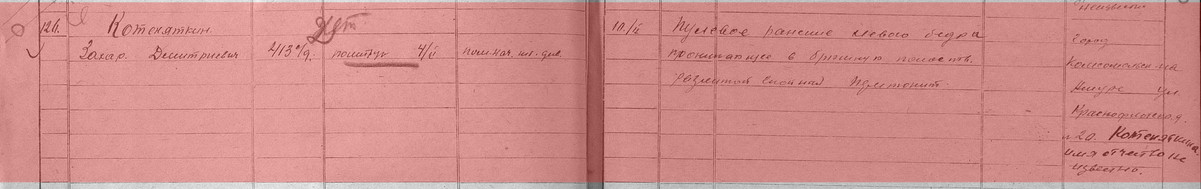 126. Котеняткин
Захар Дмитриевич 213 с/д. политрук 4/V пом. нач. шт. див. 10/V Пулевое ранение левого бедра
проникающее в брюшную полость.
Разлитой гнойный перитонит.
Неизвестн
Город
Комсомольск-на
Амуре ул.
Краснофлотская д.
№20. Котеняткина
имя отчество не
известно.